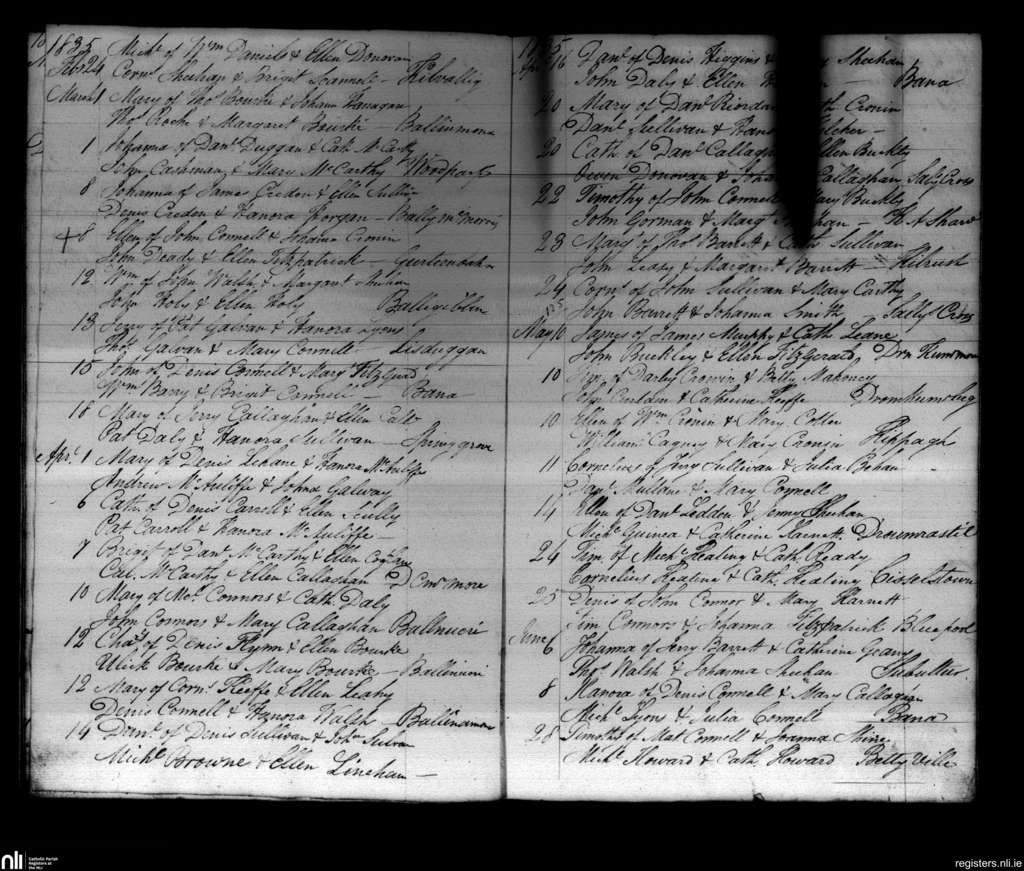 1835 Michl of Wm Daniels & Ellen Donovan
Feb 24 Corns Sheehan & Brigit Scannell - Kilvallig
March 1 Mary of Thos Bourke & Johana Flanagan
Thos Roche & Margaret Bourke - Ballinamona
1 Johanna of Danl Duggan & Cath McCarthy
John Cashman & Mary McCarthy Woodpark
8 Johanna of James Credon & Ellen
Denis Credon & Hanora Horgan -
8 Ellen of John Connell & Johanna Cronin
John Deady & Ellen Fitzpatrick -
12 Wm of John Walsh & Margaret Sheehan
John Foly & Ellen Foly
13 Jerry of Pat Galvan & Hanora Lyons
Thos Galvan & Mary Connell - Lisduggan
15 John of Denis Connell & Mary FitzGerald
Wm Barry & Brigit Connell - Bana
18 Mary of Jerry Callaghan & Ellen
Pat Daly & Hanora Sullivan - Springgrove
Apr 1 Mary of Denis Lehane & Hanora McAuliffe
Andrew McAuliffe & Johna Galway
6 Cath of Denis Carroll & Ellen Scully
Pat Carroll & Hanora McAuliffe -
7 Brigit of Danl McCarthy & Ellen
Cal. McCarthy & Ellen Callaghan
10 Mary of Connors & Cath Daly
John Connors & Mary Callaghan
12 Chas of Denis Flynn & Ellen Bourke
Ulick Bourke & Mary Bourke -
12 Mary of Corns Keeffe & Ellen Leahy
Denis Connell & Hanora Walsh - Ballinamona
14 of Denis Sullivan &
Michl Browne & Ellen Linehan -
1835
Apr 16 Danl of Denis Higgins & Sheehan
John Daly & Ellen - Bana
20 Mary of Danl Riordan Cronin
Danl Sullivan &
20 Cath of Danl Ellen Buckly
Owen Donovan & Callaghan Saly Cross
22 Timothy of John Connell Mary Buckly
John Gorman & Marg -
23 Mary of Thos Barrett & Sullivan
John Leary & Margaret Barrett - Kilrush
24 Corns of John Sullivan & Mary Carthy
John Barrett & Johanna Smith - Sally Cross
May 10 Agnes of James Murphy & Cath Leane
John Buckley & Ellen FitzGerald,
10 of Darby Cronin & Betty Mahoney
& Catherine Keffe
10 Ellen of Wm Cronin & Mary
William Cagney & Mary Cronin Keppagh
11 Cornelius of Jerry Sullivan & Julia Behan
Danl Mullane & Mary Connell
14 Ellen of Danl Leddon & Sheehan
Michl Guinea & Catherine Harnett Droumrastil
24 Tim of Michl Healing & Cath Ready
Cornelius Healing & Cath Healing Cisselstown
25 Denis of John Connor & Mary Harnett
Tim Connors & Johanna Fitzpatrick Bluepool
June 6 Johanna of Jerry Barrett & Catherine Geany
Thos Walsh & Johanna Sheehan
8 Hanora of Denis Connell & Mary Callaghan
Michl Lyons & Julia Connell Bana
28 Timothy of Mat Connell & Joanna
Michl Howard & Cath Howard Betty Ville
nli
Catholic Parish
Registers at
the NLI
registers.nli.ie